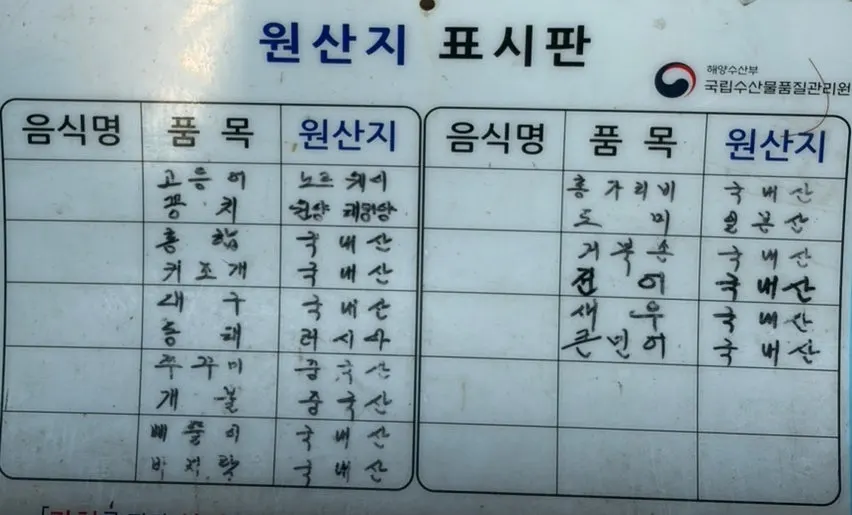 원산지 표시판
해양수산부
국립수산물품질관리원
음식명 품 목 원산지
고등어 노르웨이
꽁치 원양 태평양
홍합 국내산
키조개 국내산
대구 국내산
동태 러시아
쭈꾸미 중국산
개불 중국산
빼뿔이 국내산
바지락 국내산
음식명 품 목 원산지
홍가리비 국내산
도미 일본산
거북손 국내산
전어 국내산
새우 국내산
큰민어 국내산